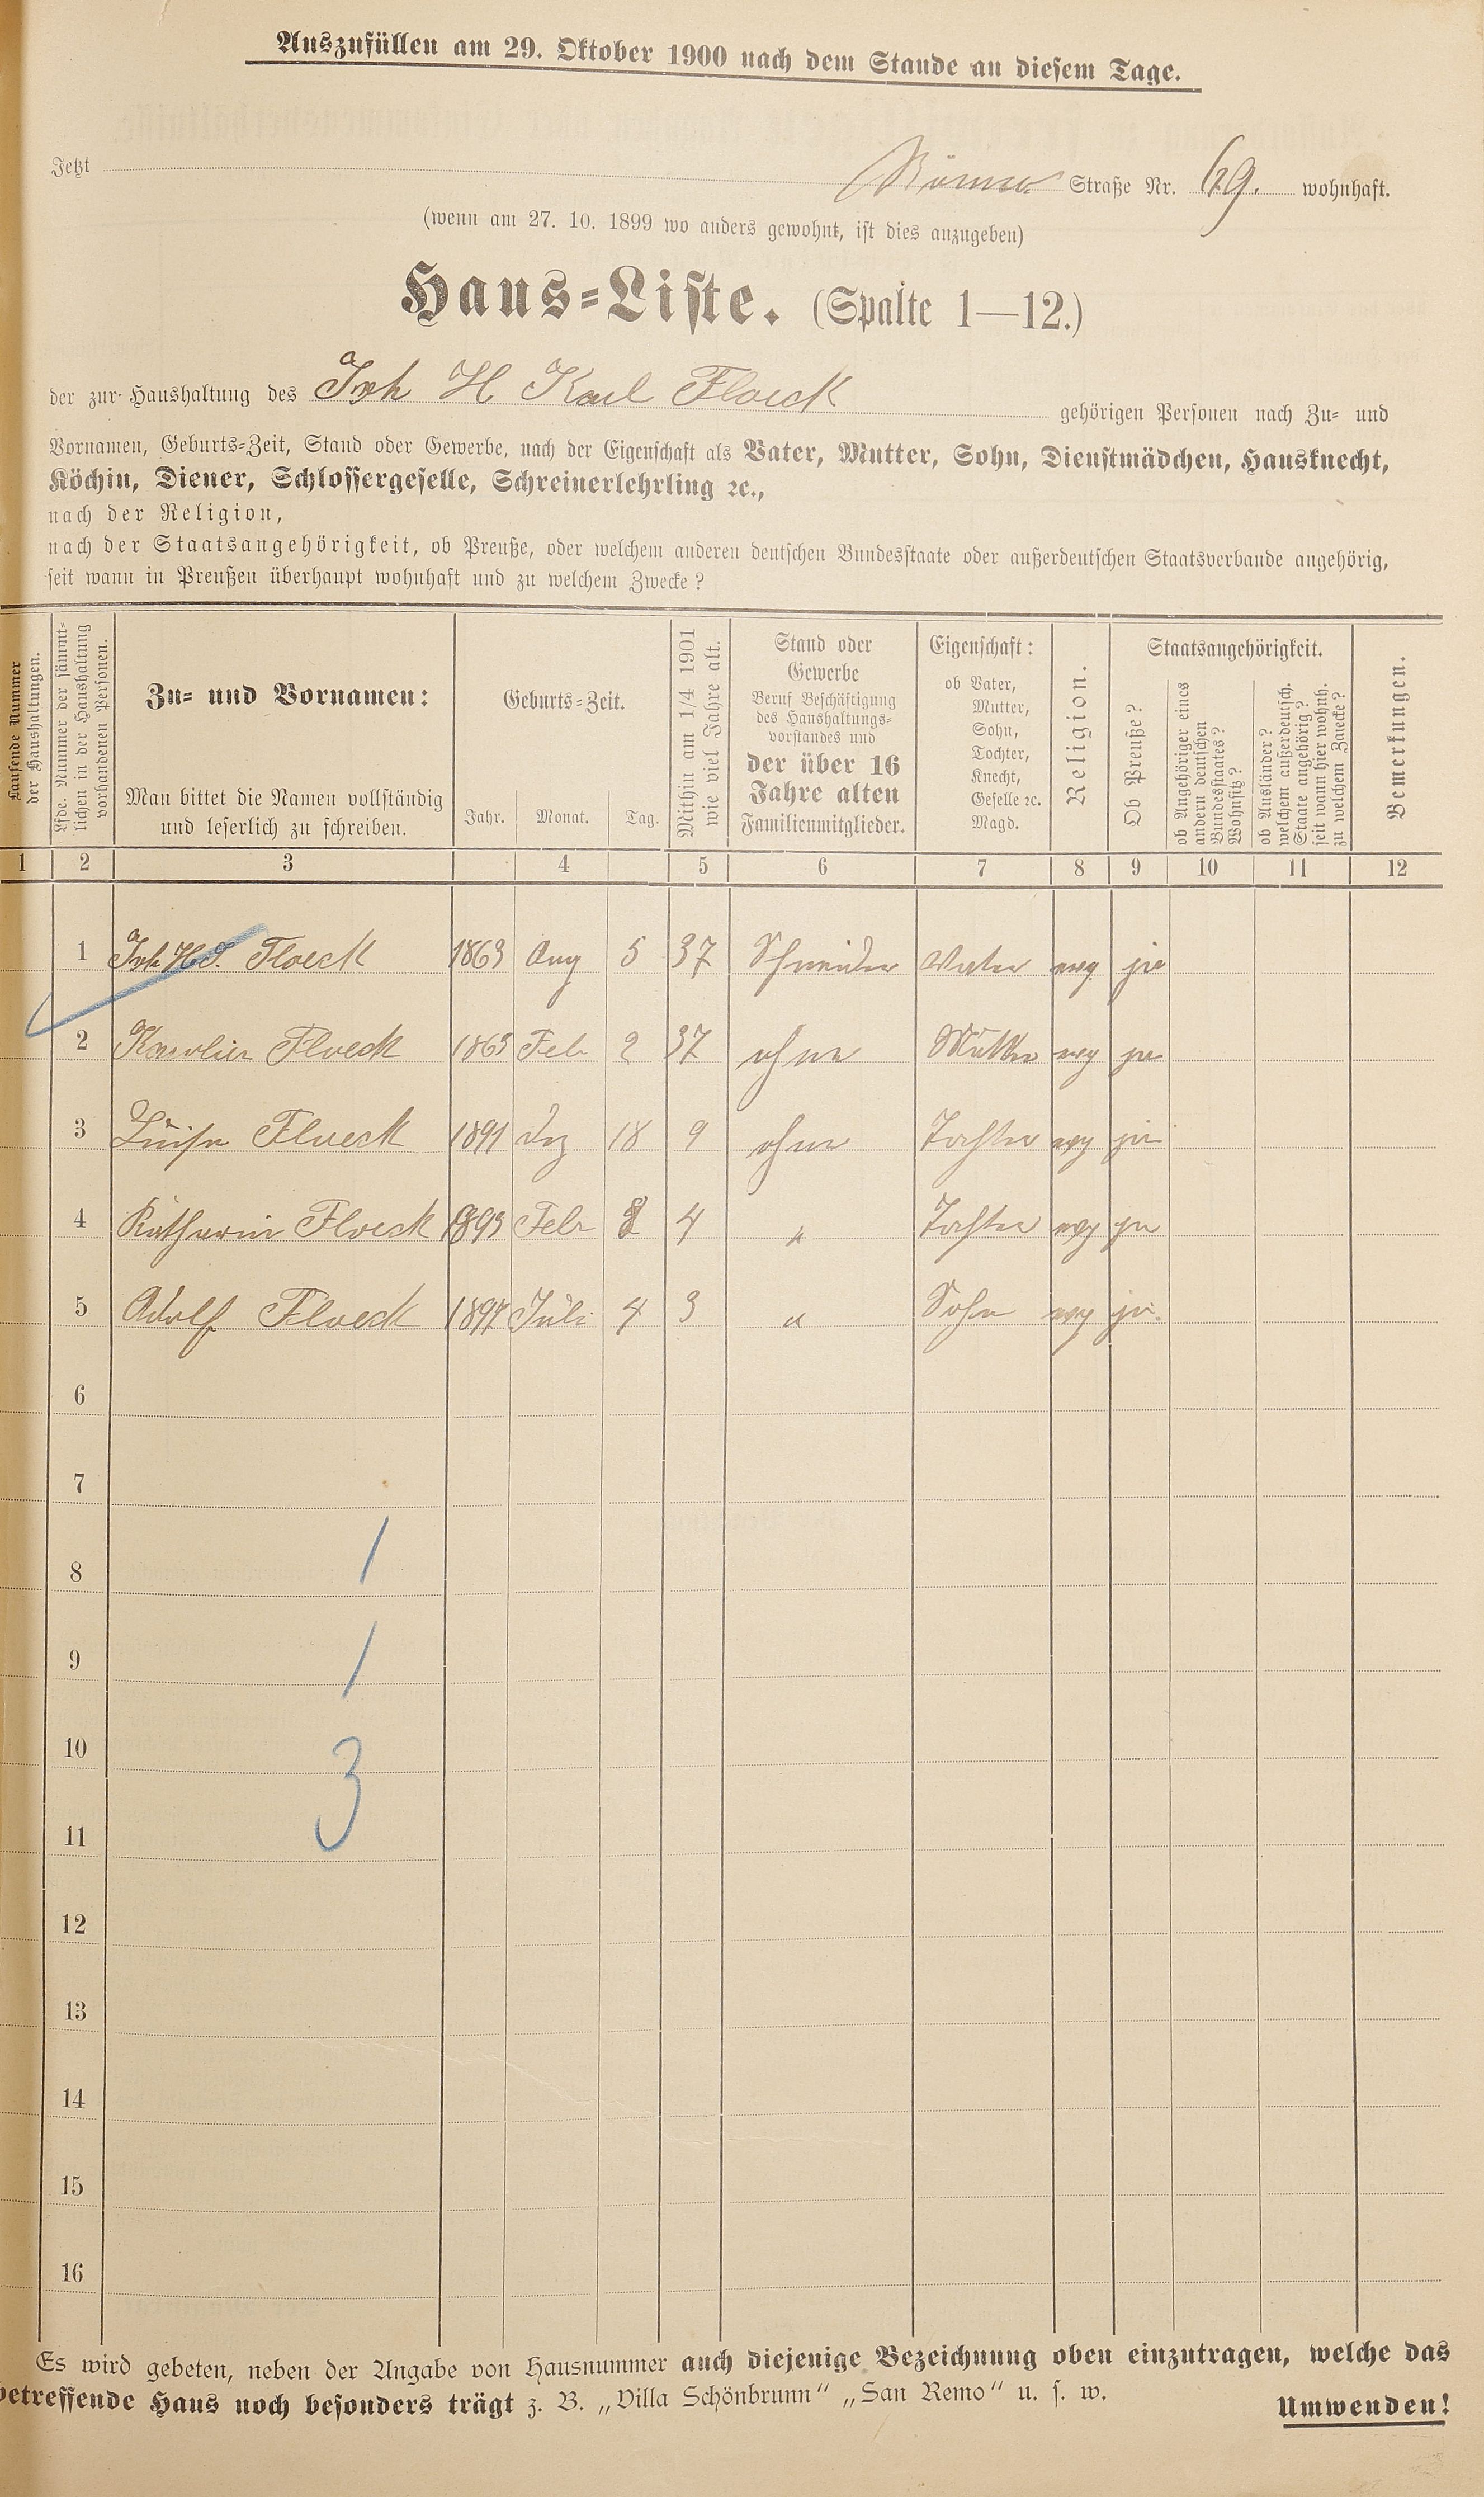 Auszufüllen am 29. Oktober 1900 nach dem Stande an diesem Tage.
Jetzt Straße Nr. 69. wohnhaft.
(wenn am 27. 10. 1899 wo anders gewohnt, ist dies anzugeben)
Haus-Liste. (Spalte 1—12.)
der zur Haushaltung des Joh H Karl Floeck gehörigen Personen nach Zu- und
Vornamen, Geburts-Zeit, Stand oder Gewerbe, nach der Eigenschaft als Vater, Mutter, Sohn, Dienstmädchen, Hausknecht,
Köchin, Diener, Schlossergeselle, Schreinerlehrling ꝛc.,
nach der Religion,
nach der Staatsangehörigkeit, ob Preuße, oder welchem anderen deutschen Bundesstaate oder außerdeutschen Staatsverbande angehörig,
seit wann in Preußen überhaupt wohnhaft und zu welchem Zwecke?
Laufende Nummer
der Haushaltungen.
Lfde. Nummer der sämmt-
lichen in der Haushaltung
vorhandenen Personen.
Zu- und Vornamen:
Man bittet die Namen vollständig
und leserlich zu schreiben.
Geburts-Zeit.
Jahr. Monat. Tag.
Mithin am 1/4 1901
wie viel Jahre alt.
Stand oder
Gewerbe
Beruf Beschäftigung
des Haushaltungs-
vorstandes und
der über 16
Jahre alten
Familienmitglieder.
Eigenschaft:
ob Vater,
Mutter,
Sohn,
Tochter,
Knecht,
Geselle ꝛc.
Magd.
Religion.
Staatsangehörigkeit.
Ob Preuße?
ob Angehöriger eines
andern deutschen
Bundesstaates?
Wohnsitz?
ob Ausländer?
welchem außerdeutsch.
Staate angehörig?
seit wann hier wohnh.
zu welchem Zwecke?
Bemerkungen.
1 2 3 4 5 6 7 8 9 10 11 12
1 Joh H. Floeck 1863 Aug 5 37 Schneider Vater evg ja
2 Karolin Floeck 1863 Feb 2 37 ohne Mutter evg ja
3 Luise Floeck 1891 Dez 18 9 ohne Tochter evg ja
4 Katharin Floeck Febr 4 " Tochter evg ja
5 Adolf Floeck 1897 Juli 4 3 " Sohn evg ja
6
7
8 1
9 1
10
3
11
12
13
14
15
16
Es wird gebeten, neben der Angabe von Hausnummer auch diejenige Bezeichnung oben einzutragen, welche das
betreffende Haus noch besonders trägt z. B. „Villa Schönbrunn“ „San Remo“ u. s. w.
Umwenden!